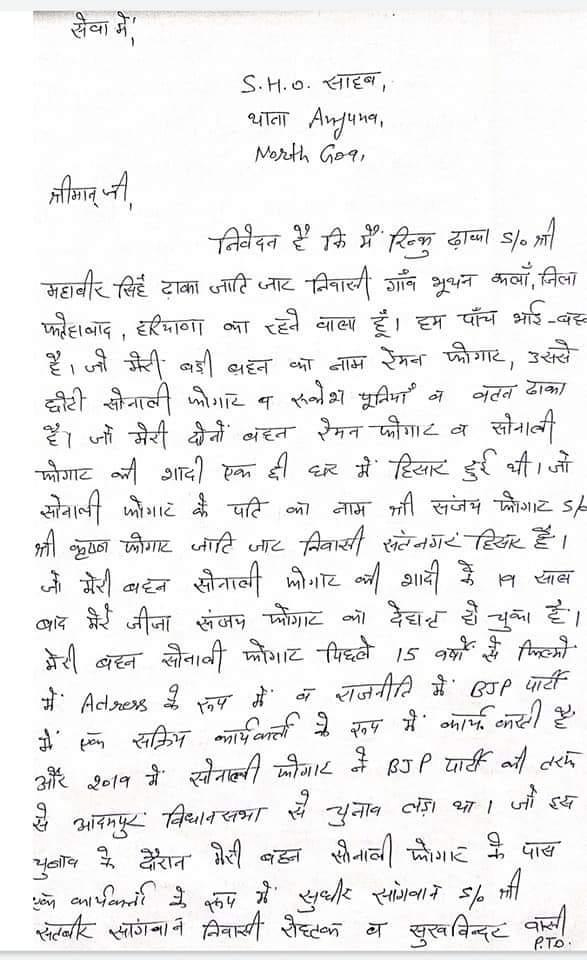 सेवा में,
S.H.O. साहब,
थाना Anjuna,
North Goa,
श्रीमान् जी,
निवेदन है कि मैं रिन्कु ढ़ाका S/o श्री
महाबीर सिहँ ढ़ाका जाति जाट निवासी गाँव भूथन कलाँ, जिला
फतेहाबाद, हरियाणा का रहने वाला हूँ। हम पाँच भाई-बहन
है। जो मेरी बड़ी बहन का नाम रेमन फोगाट, उससे
छोटी सोनाली फोगाट व रूकेश पूनियाँ व वतन ढाका
है। जो मेरी दोनों बहन रेमन फोगाट व सोनाली
फोगाट की शादी एक ही घर में हिसार हुई थी। जो
सोनाली फोगाट के पति का नाम श्री संजय फोगाट S/o
श्री कृष्ण फोगाट जाति जाट निवासी संतनगर हिसार है।
जो मेरी बहन सोनाली फोगाट की शादी के 19 साल
बाद मेरे जीजा संजय फोगाट का देहान्त हो चुका है।
मेरी बहन सोनाली फोगाट पिछले 15 वर्षों से फिल्मों
में Actress के रूप में व राजनीति में BJP पार्टी
में एक सक्रिय कार्यकर्ता के रूप में कार्य करती है
और 2019 में सोनाली फोगाट ने BJP पार्टी की तरफ
से आदमपुर विधानसभा से चुनाव लड़ा था। जो इस
चुनाव के दौरान मेरी बहन सोनाली फोगाट के पास
एक कार्यकर्ता के रूप में सुधीर सांगवान S/o श्री
सतबीर सांगवान निवासी रोहतक व सुखविन्दर वासी
P.T.O.